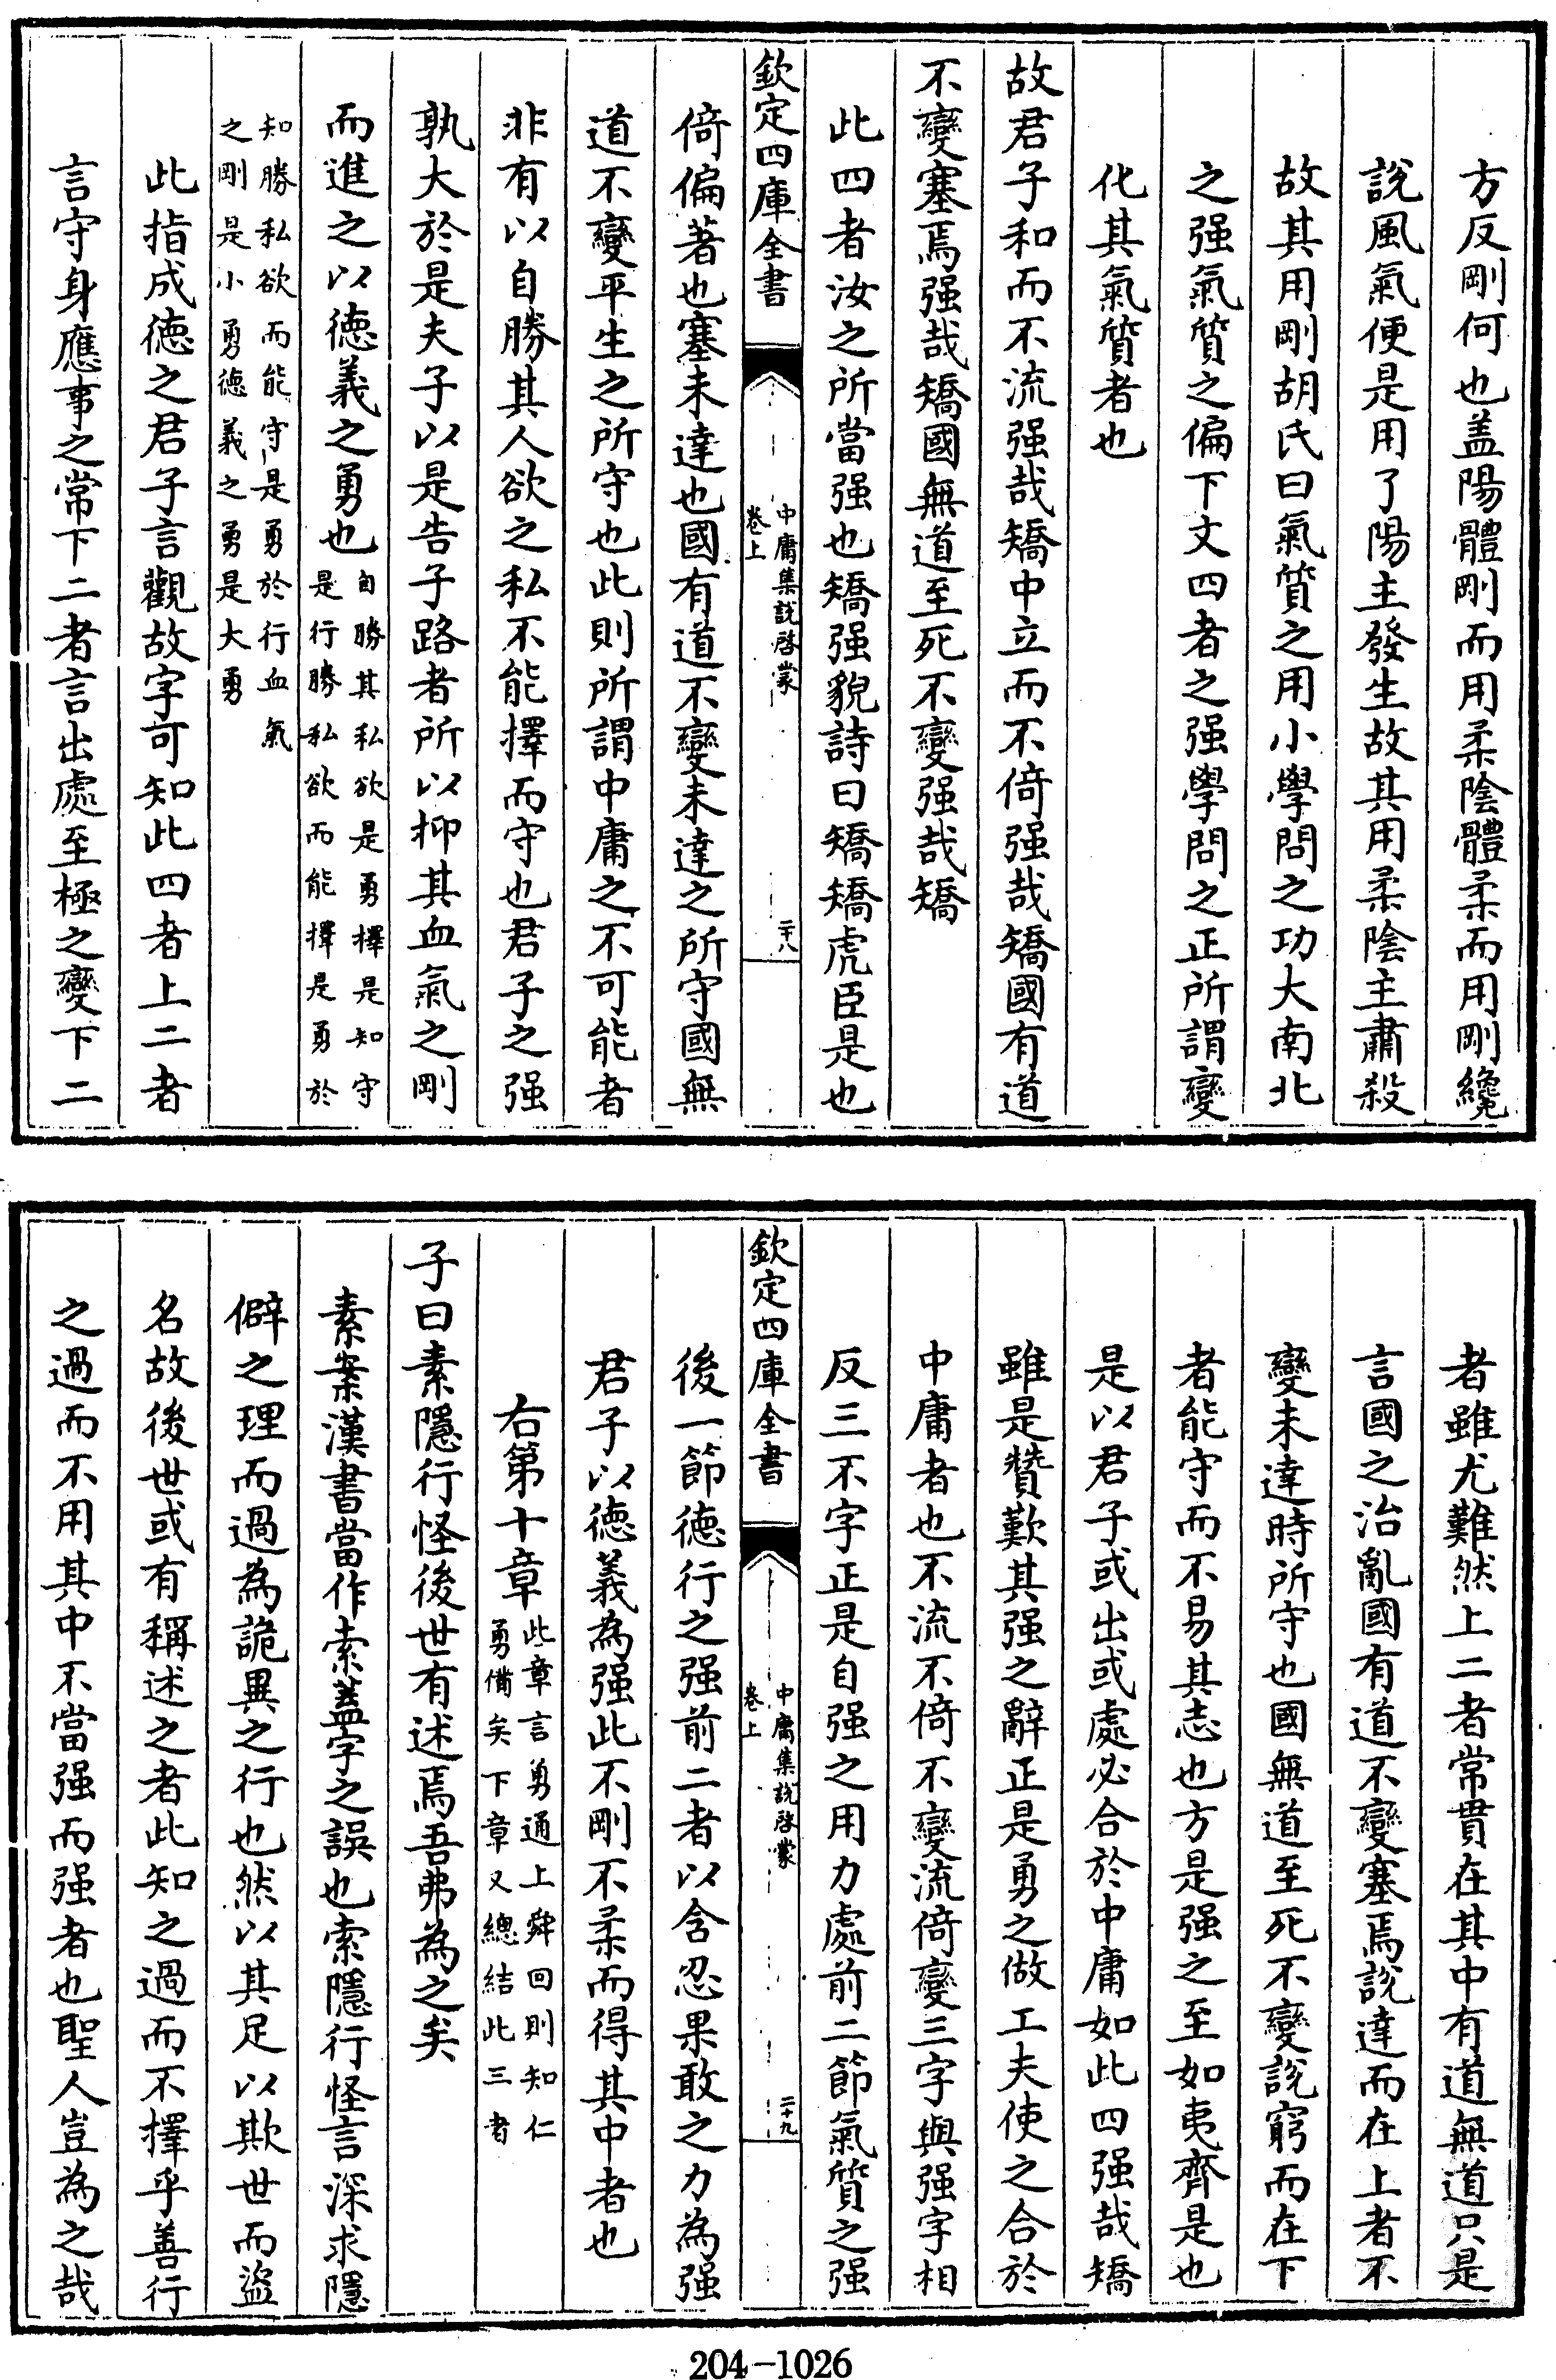 方反剛何也蓋陽體剛而用柔陰體柔而用剛纔
說風氣便是用了陽主發生故其用柔陰主肅殺
故其用剛胡氏曰氣質之用小學問之功大南北
之强氣質之偏下文四者之强學問之正所謂變
化其氣質者也
故君子和而不流强哉矯中立而不倚强哉矯國有道
不變塞焉强哉矯國無道至死不變强哉矯
此四者汝之所當强也矯强貌詩曰矯矯虎臣是也
欽定四庫全書
中庸集說啓蒙
卷上
二十八
倚偏著也塞未達也國有道不變未達之所守國無
道不變平生之所守也此則所謂中庸之不可能者
非有以自勝其人欲之私不能擇而守也君子之强
孰大於是夫子以是告子路者所以抑其血氣之剛
而進之以德義之勇也自勝其私欲是勇擇是知守
是行勝私欲而能擇是勇於
知勝私欲而能守是勇於行血氣
之剛是小勇德義之勇是大勇
此指成德之君子言觀故字可知此四者上二者
言守身應事之常下二者言出處至極之變下二
者雖尤難然上二者常貫在其中有道無道只是
言國之治亂國有道不變塞焉說達而在上者不
變未達時所守也國無道至死不變說窮而在下
者能守而不易其志也方是强之至如夷齊是也
是以君子或出或處必合於中庸如此四强哉矯
雖是贊歎其强之辭正是勇之做工夫使之合於
中庸者也不流不倚不變流倚變三字與强字相
反三不字正是自强之用力處前二節氣質之强
欽定四庫全書
中庸集說啓蒙
卷上
二十九
後一節德行之强前二者以含忍果敢之力為强
君子以德義為强此不剛不柔而得其中者也
右第十章此章言勇通上舜回則知仁
勇備矣下章又總結此三者
子曰素隱行怪後世有述焉吾弗為之矣
素案漢書當作索蓋字之誤也索隱行怪言深求隱
僻之理而過為詭異之行也然以其足以欺世而盜
名故後世或有稱述之者此知之過而不擇乎善行
之過而不用其中不當强而强者也聖人豈為之哉
204-1026